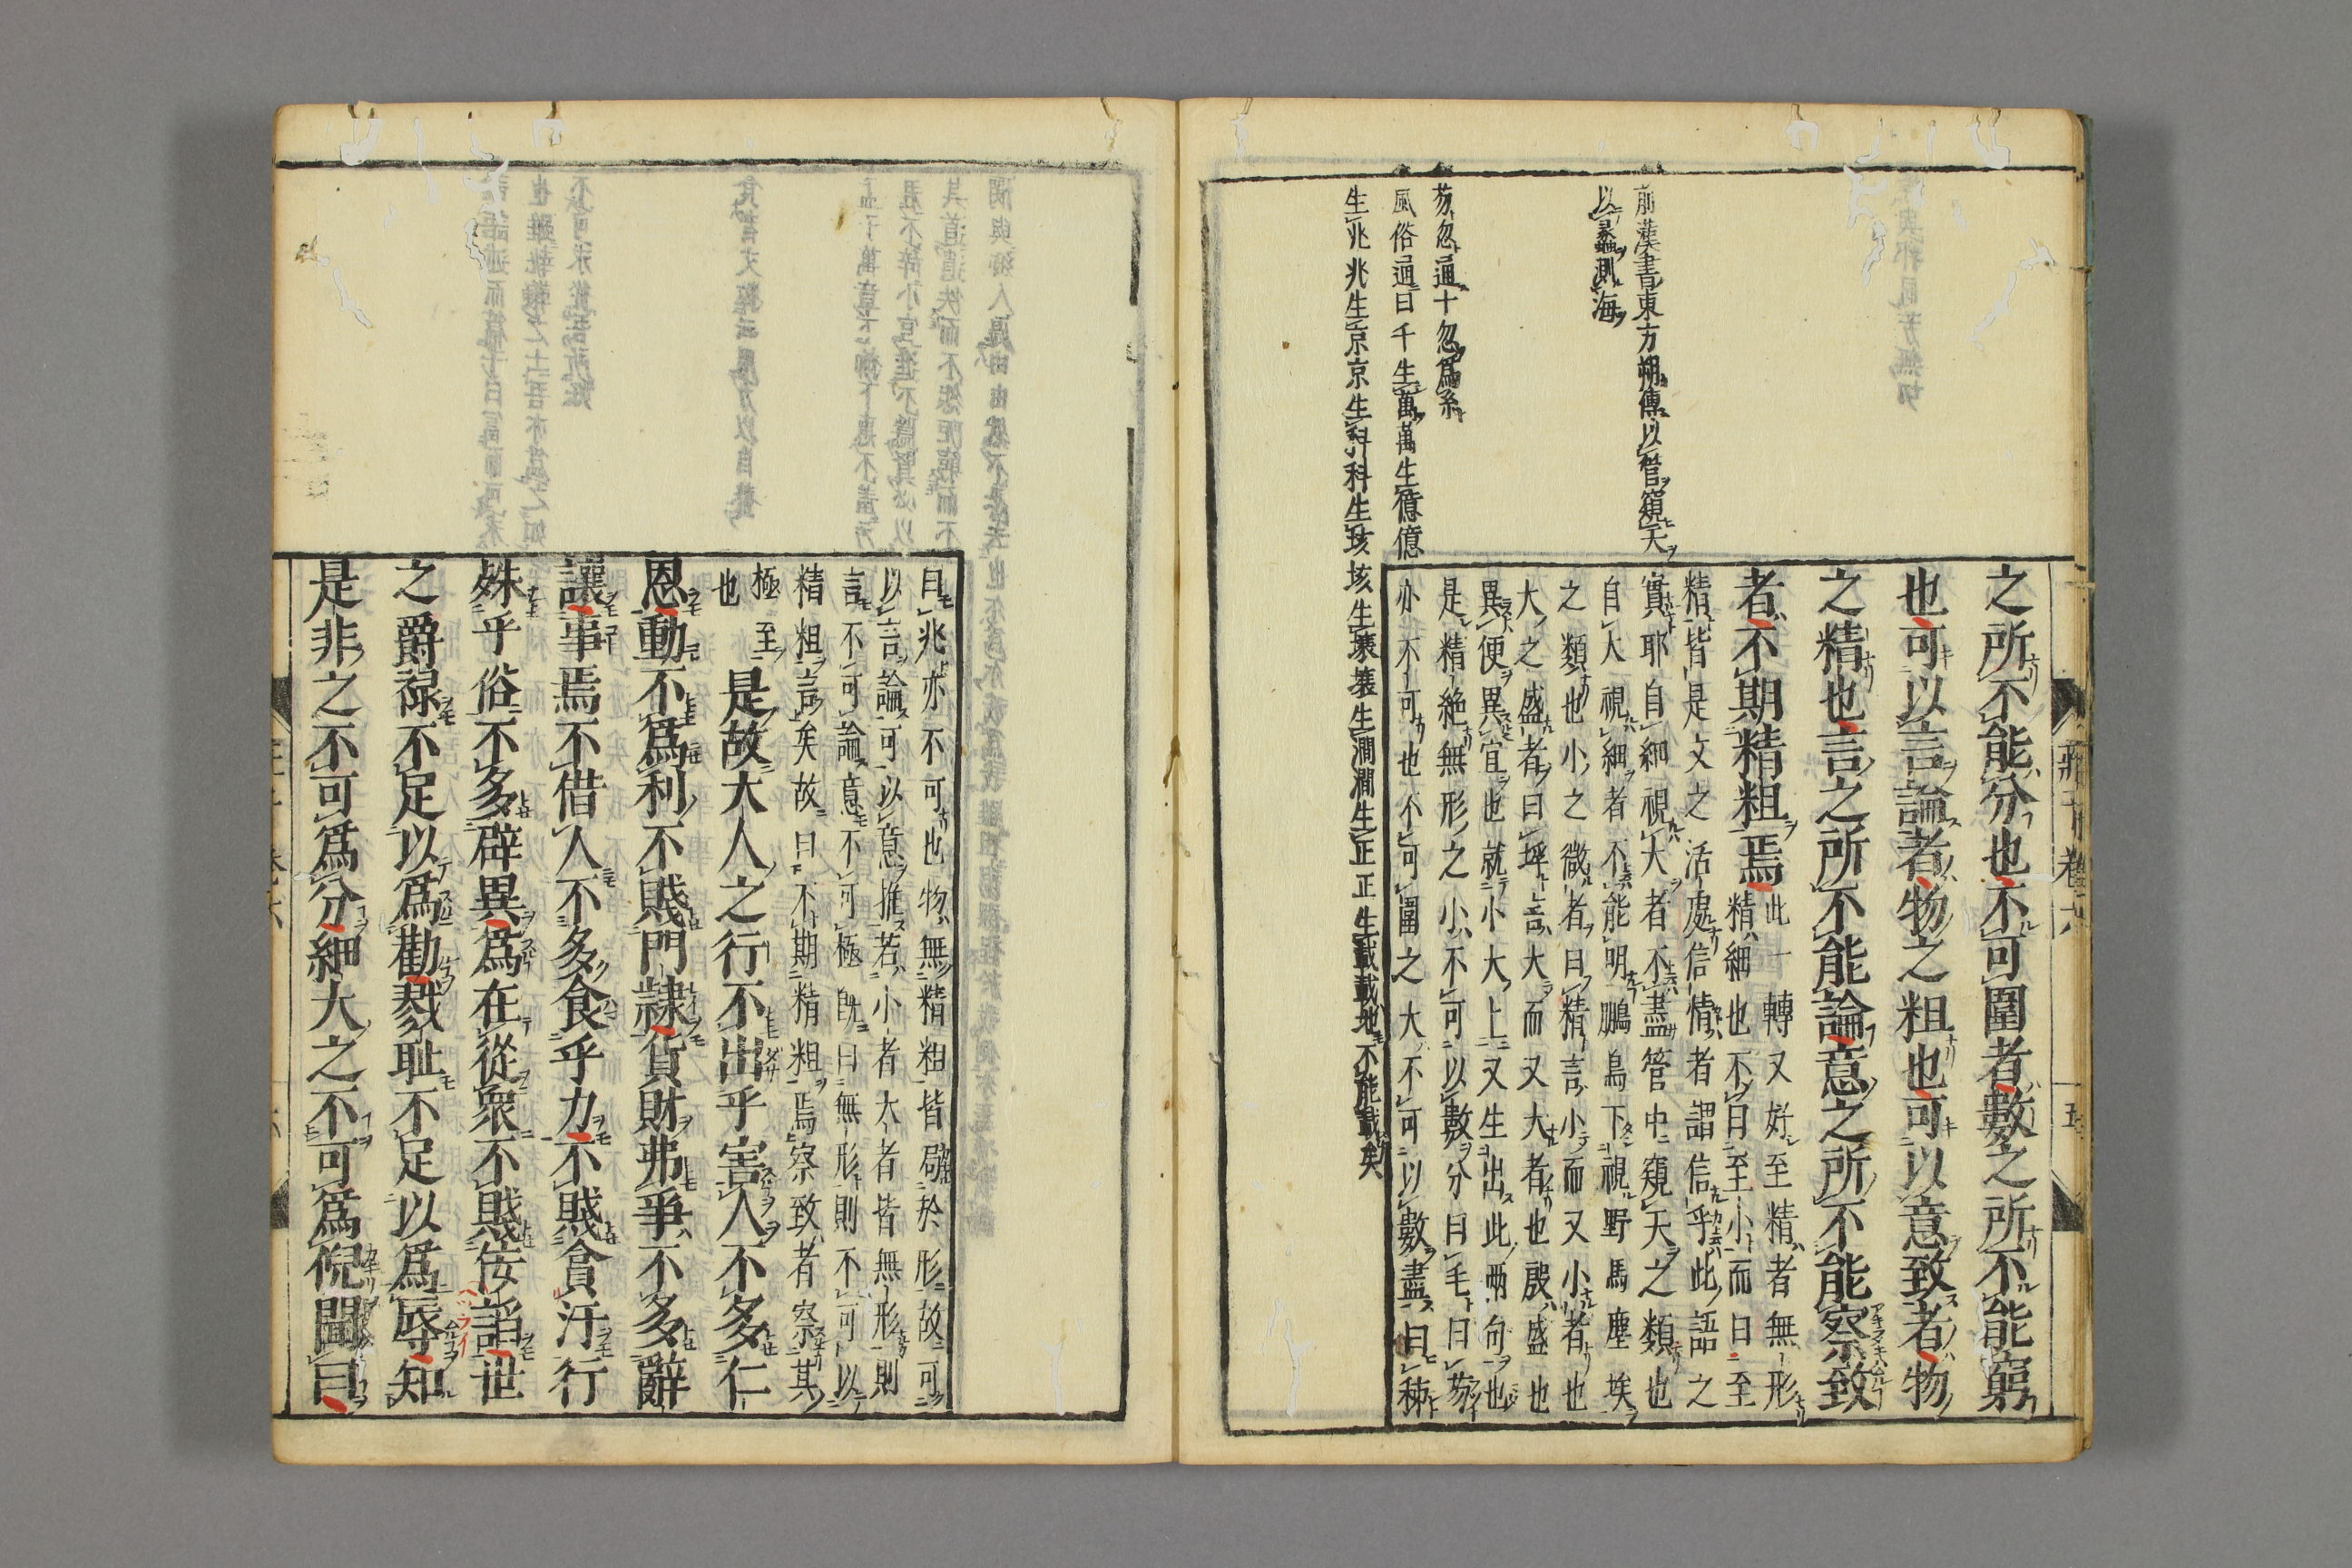 前漢書東方朔傳以管窺天
以蠡測海
芴忽通十忽爲糸
風俗通曰千生萬萬生億億
生兆兆生京京生科科生垓垓生壤壤生澗澗生正正生載載地不能載矣
之所不能分也不可圍者數之所不能窮
也可以言論者物之粗也可以意致者物
之精也言之所不能論意之所不能察致
者不期精粗焉
此一轉又好至精者無形
精細也不曰至小而曰至
精皆是文之活處信情者謂信乎此語之
實耶自細視大者不盡管中窺天之類也
自大視細者不能明鵬鳥下視野馬塵埃
之類也小之微者曰精言小而又小者也
大之盛者曰垺言大而又大者也殷盛也
異便異宜也就小大上又生出此兩句也
是精絶無形之小不可以數分曰毛曰芴
亦不可也不可圍之大不可以數盡曰秭
曰兆亦不可也物無精粗皆局於形故可
以言論可以意推若小者大者皆無形則
言不可論意不可極旣曰無形則不可以
精粗言矣故曰不期精粗焉察致者察其
極至
也
是故大人之行不出乎害人不多仁
恩動不爲利不賤門隷貨財弗爭不多辭
讓事焉不借人不多食乎力不賤貪汙行
殊乎俗不多辟異爲在從衆不賤佞諂世
之爵祿不足以爲勸戮耻不足以爲辱知
是非之不可爲分細大之不可爲倪聞曰